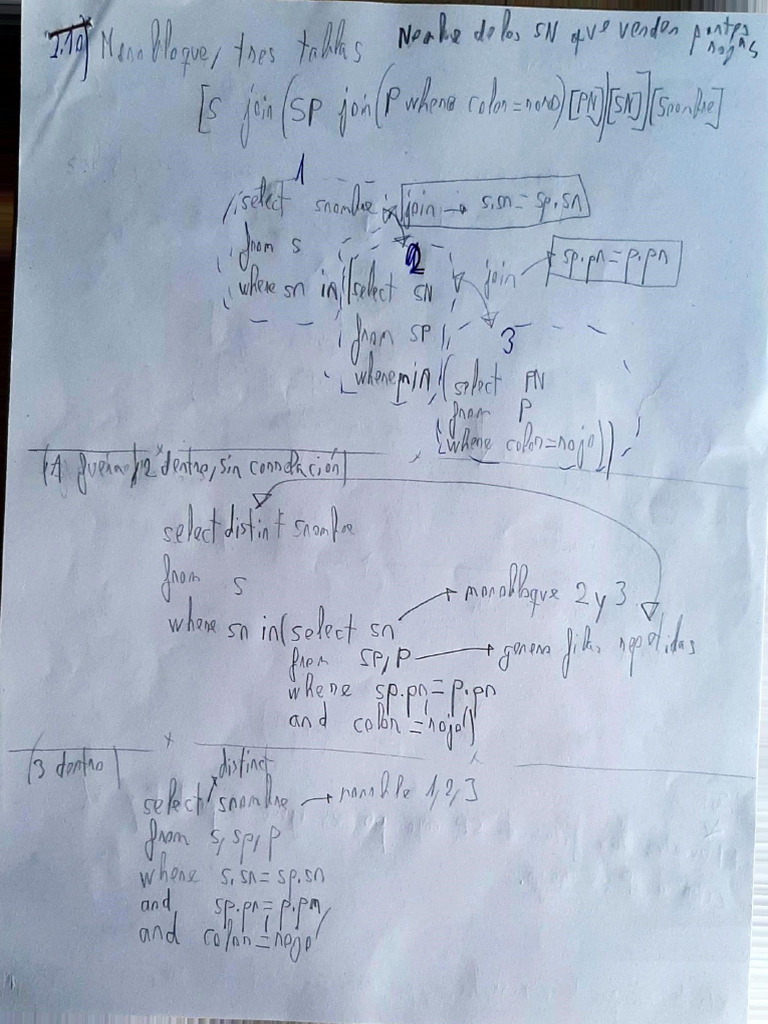 2.10) Monobloque, tres tablas Nombre de los SN que venden partes rojas
[S join (SP join (P where color=rojo)[PN])[SN]][Snombre]
1
select snombre join → s.sn = sp.sn
from s
2
where sn in (select SN join sp.pn = p.pn
from SP
3
where pn in (select PN
from P
where color=rojo))
(1 fuera) 2 dentro, sin correlación)
select distint snombre
from s
where sn in (select sn → monobloque 2 y 3
from sp, p → genera filas repetidas
where sp.pn = p.pn
and color = 'rojo')
(3 dentro) distinct
select snombre → 1, 2, 3
from s, sp, p
where s.sn = sp.sn
and sp.pn = p.pn
and color = 'rojo'